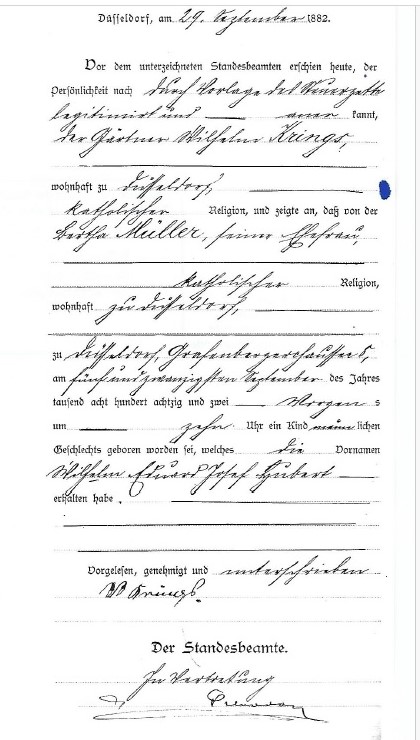 Düsseldorf, am 29. September 1882.
Vor dem unterzeichneten Standesbeamten erschien heute, der
Persönlichkeit nach durch Vorlage des Steuerzettels
legitimirt und kannt,
der Gärtner Wilhelm Krings,
wohnhaft zu Düsseldorf,
katholischer Religion, und zeigte an, daß von der
Bertha Müller, seiner Ehefrau,
katholischer Religion,
wohnhaft zu Düsseldorf,
zu Düsseldorf, Grafenbergerchaussee
am fünf und zwanzigsten September des Jahres
tausend acht hundert achtzig und zwei Morgens
um zehn Uhr ein Kind männlichen
Geschlechts geboren worden sei, welches die Vornamen
Wilhelm Eduard Josef Hubert
erhalten habe.
Vorgelesen, genehmigt und unterschrieben
W Krings.
Der Standesbeamte.
In Vertretung